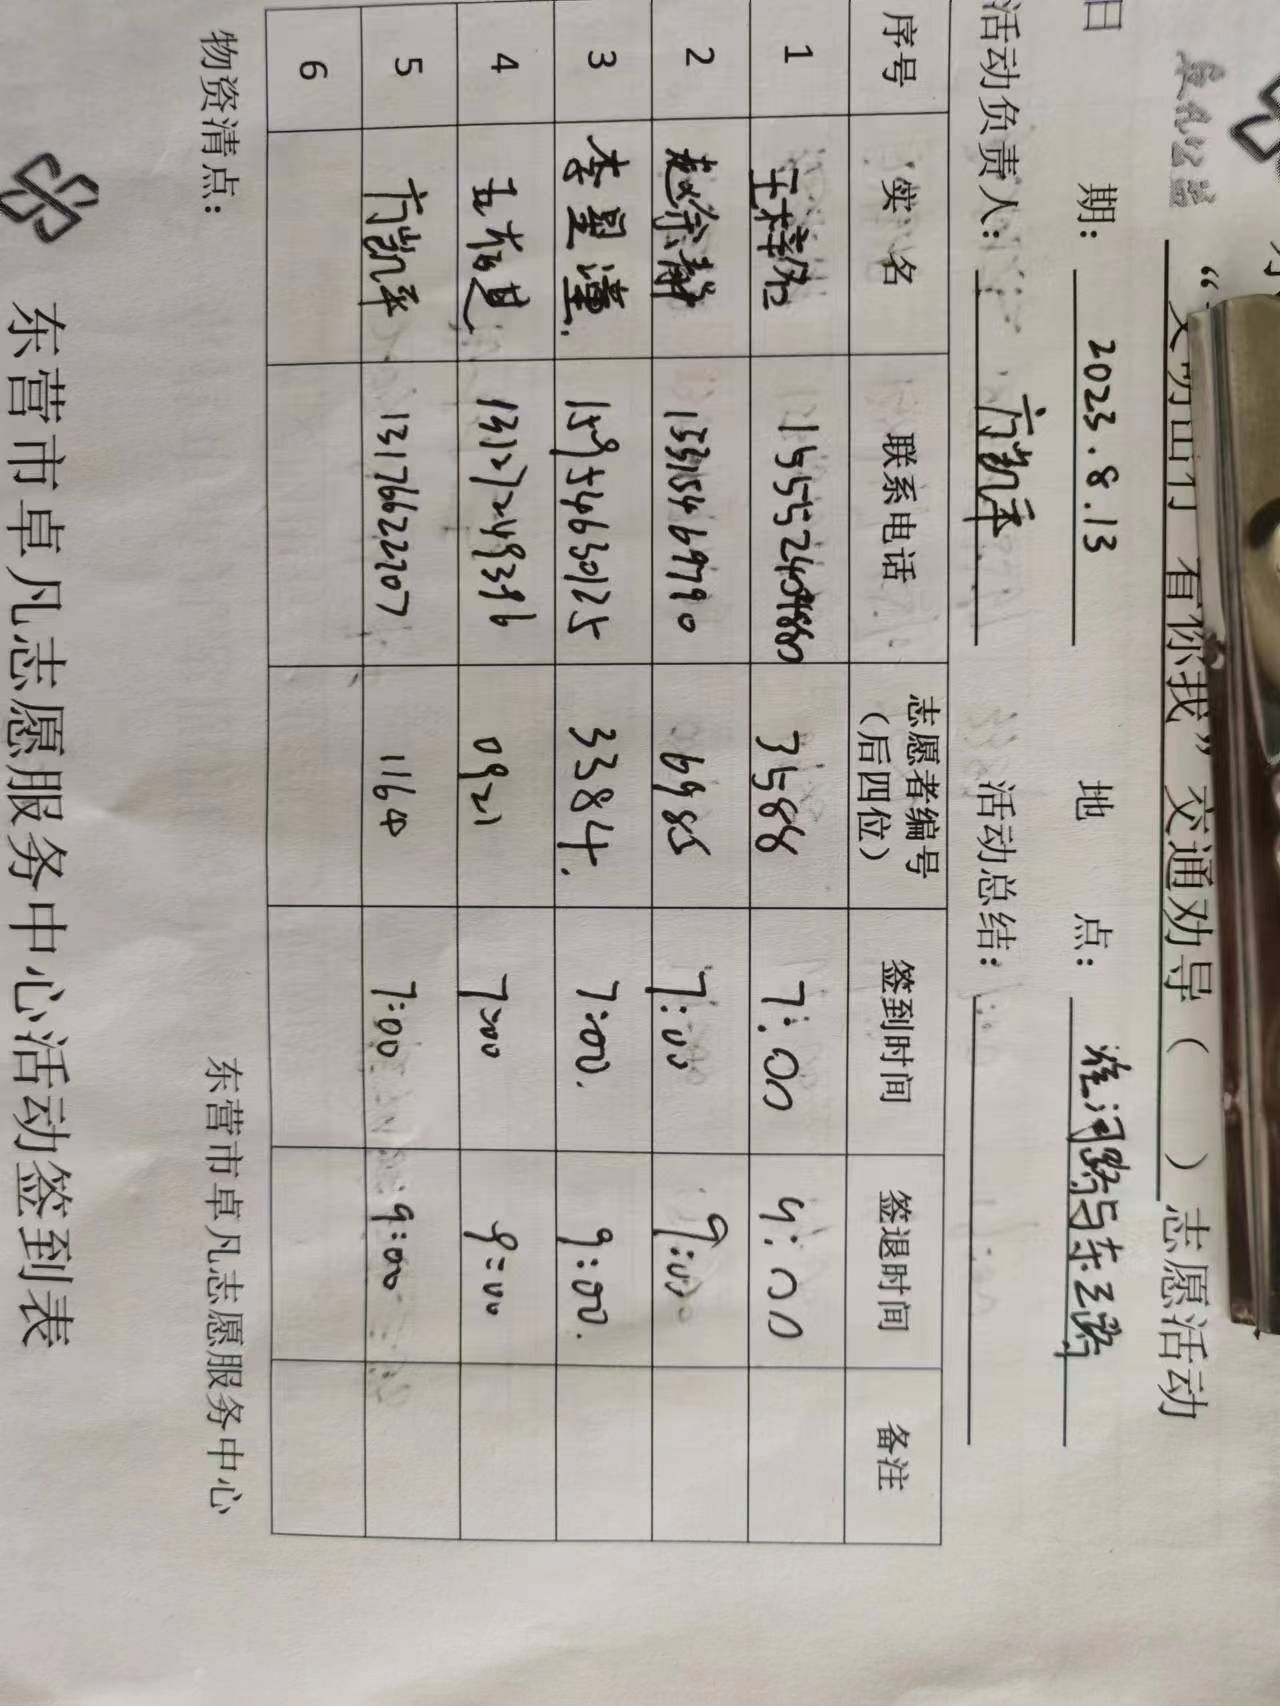 卓凡公益
“文明出行 有你我”交通劝导（ ）志愿活动
日 期： 2023.8.13 地 点： 淮河路与东二路
活动负责人： 方凯平 活动总结：
序号 实 名 联系电话 志愿者编号（后四位） 签到时间 签退时间 备注
1 王梓铭 3588 7:00 9:00
2 赵徐静 13315469790 6985 7:00 9:00
3 李星瑾. 15954630125 3384. 7:00. 9:00.
4 13127249396 0921 7:00 9:00
5 方凯平 13176622207 1164 7:00 9:00
6
物资清点： 东营市卓凡志愿服务中心
东营市卓凡志愿服务中心活动签到表